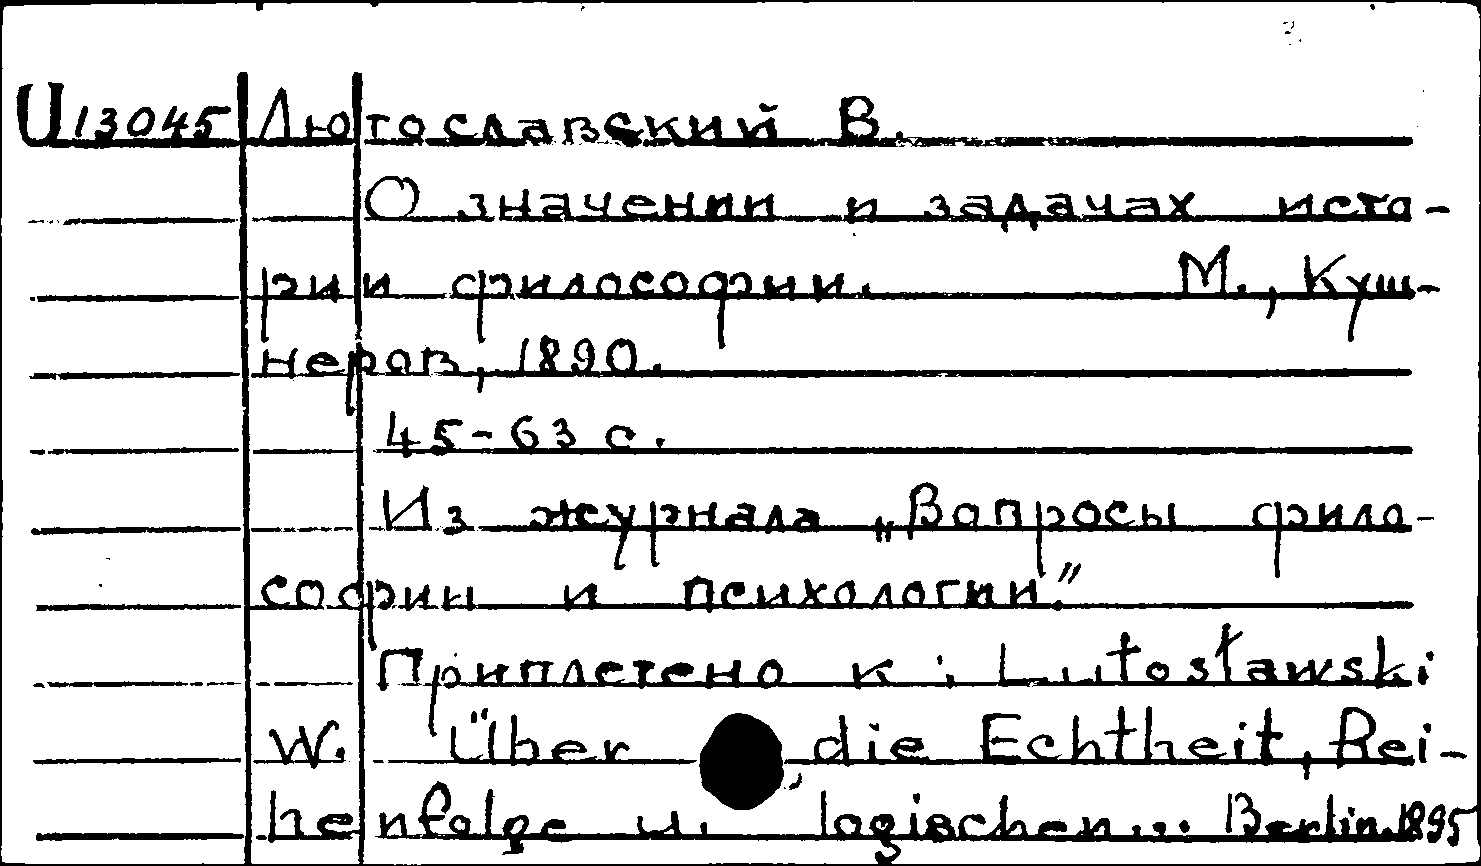 U13045 Лютославский В.
О значении и задачах исто-
рии философии. М., Куш-
неров, 1890.
45-63 с.
Из журнала „Вопросы фило-
софии и психологии."
Приплетено к : Lutosławski
W. Über die Echtheit, Rei-
henfolge u. logischen... Berlin. 1895